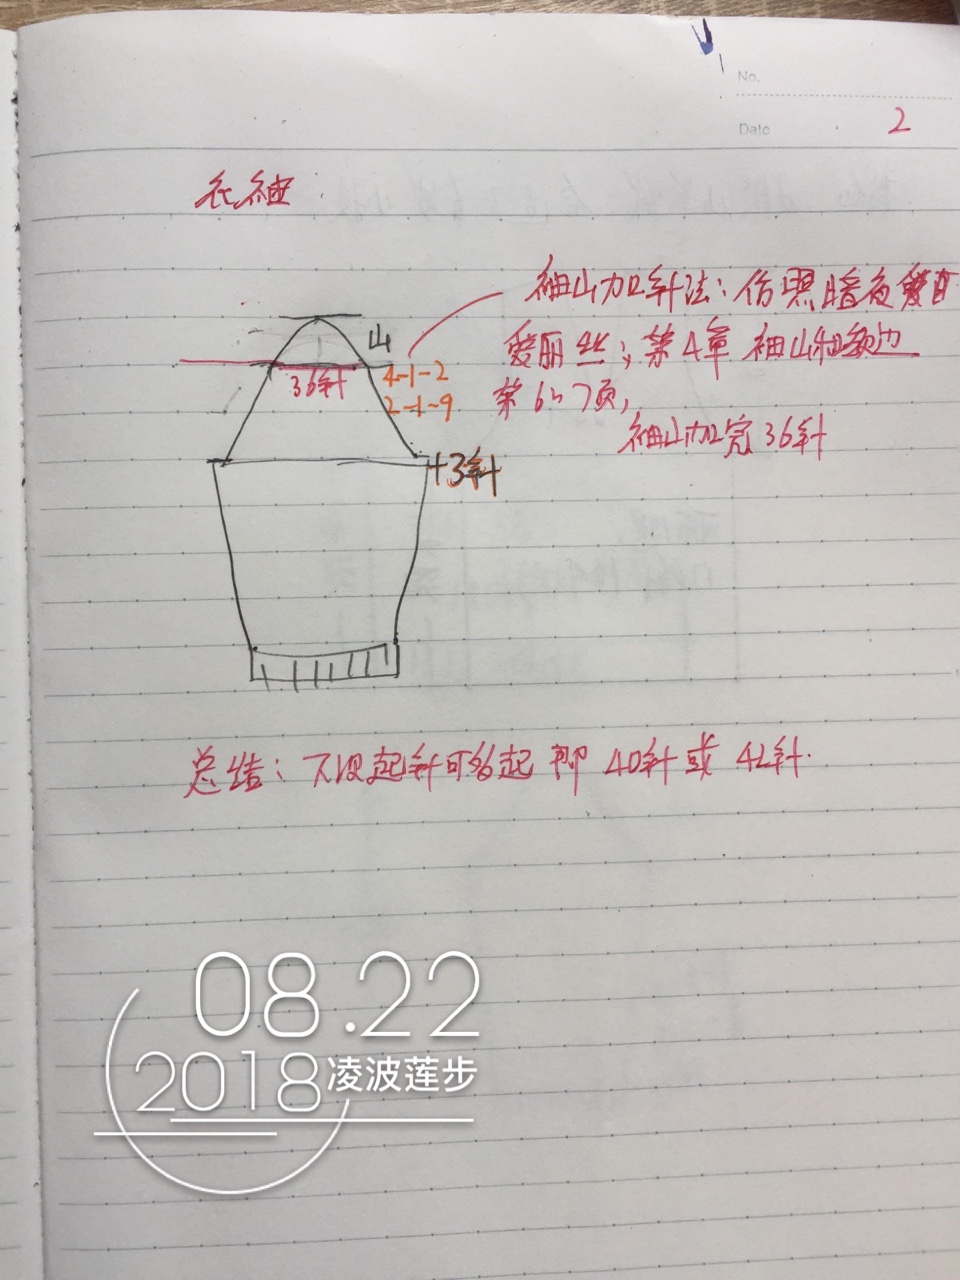 No.
Date
2
长袖:
袖山加针法:仿照暗夜
爱丽丝;第4章 袖山和领边
第6、7页,
袖山加宽36针
山
36针
4-1-2
2-1-9
+3针
总结:下次起针可多起 即 40针或 42针.
08.22
2018凌波莲步